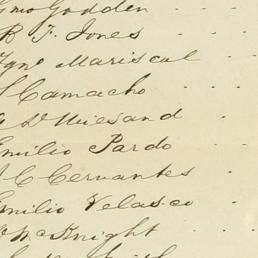 Godden
B F. Jones
Ygno Mariscal
Camacho
Emilio Pardo
C Cervantes
Emilio Velasco
McKnight